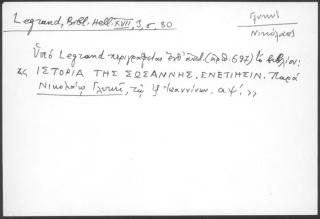 Legrand, Bibl. Hell. XVII, 3, σ. 80
Γλυκύς
Νικόλαος
Ὑπὸ Legrand περιγράφεται (ἀρθ. 697) τὸ βιβλίον:
« ΙΣΤΟΡΙΑ ΤΗΣ ΣΩΣΑΝΝΗΣ. ΕΝΕΤΙΗΣΙΝ. Παρὰ
Νικολάῳ Γλυκεῖ, τῷ ἐξ Ἰωαννίνων. αψ΄. »